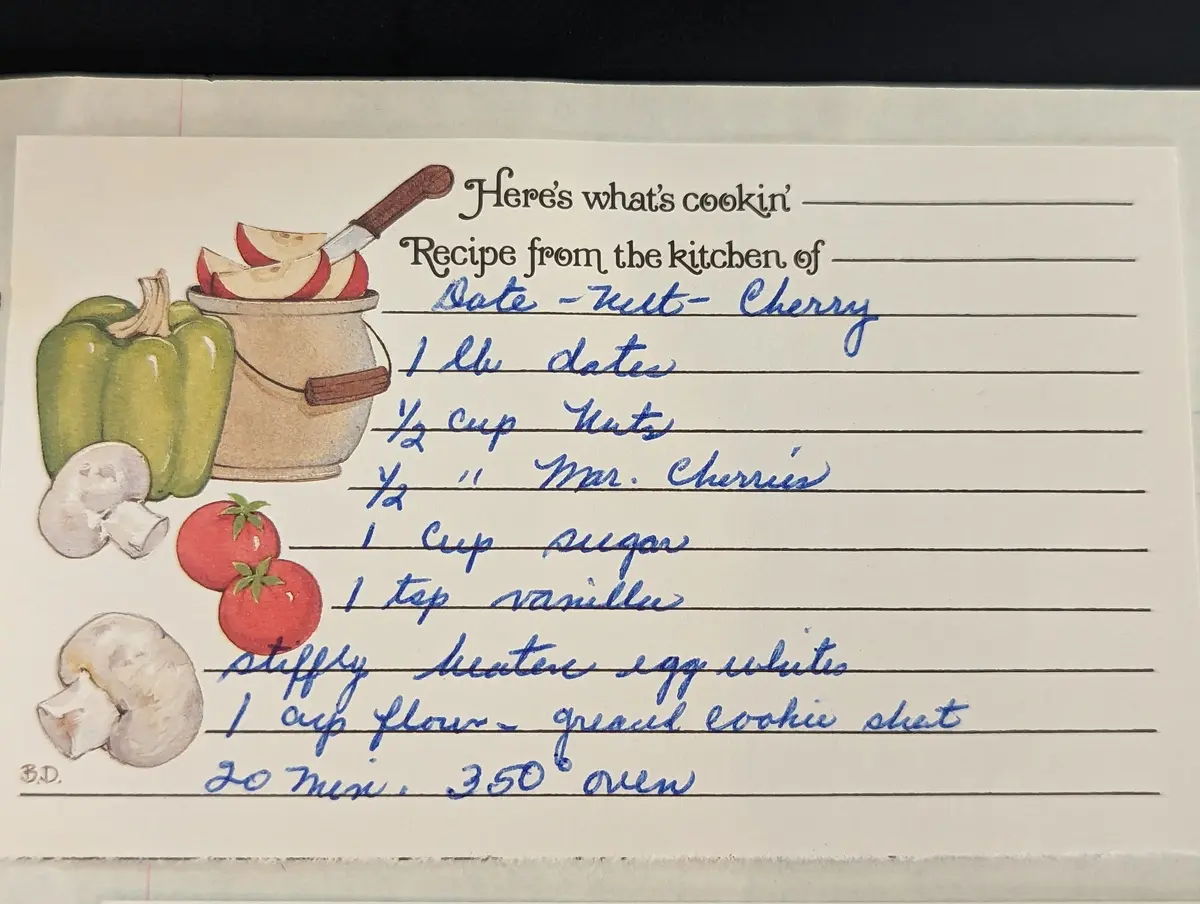 Here's what's cookin'
Recipe from the kitchen of
Date - Nut - Cherry
1 lb dates
1/2 cup Nuts
1/2 " Mar. Cherries
1 Cup sugar
1 tsp vanilla
stiffly beaten egg whites
1 cup flour - greased cookie sheet
20 Min. 350° oven
B.D.